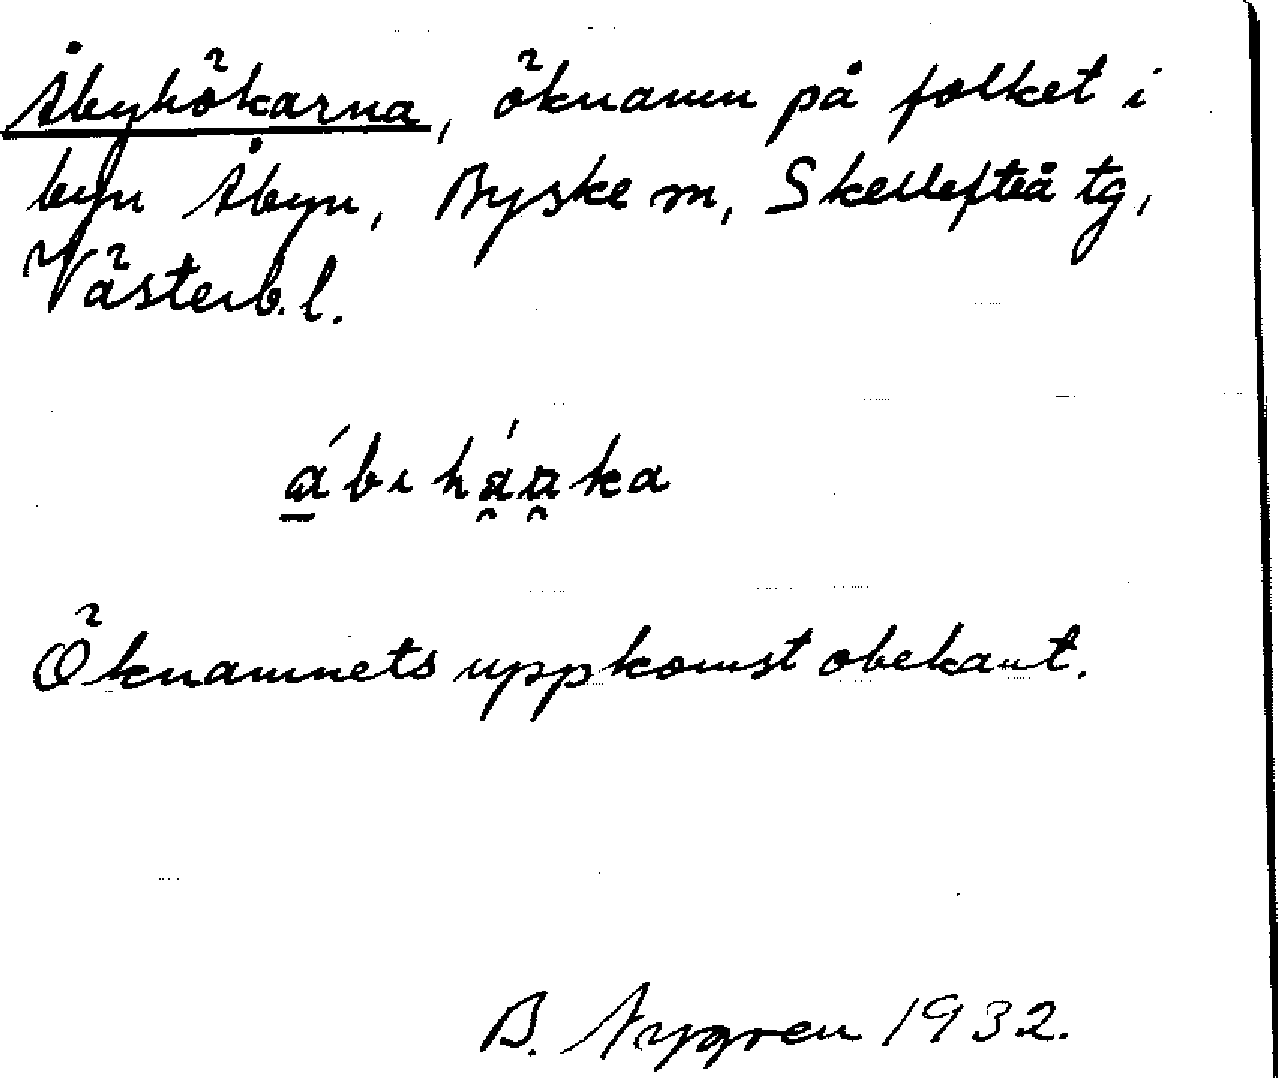 Åbyhökarna, öknamn på folket i
byn Åbyn, Byske m, Skellefteå tg,
Västerb.l.
Öknamnets uppkomst obekant.
B. Nygren 1932.